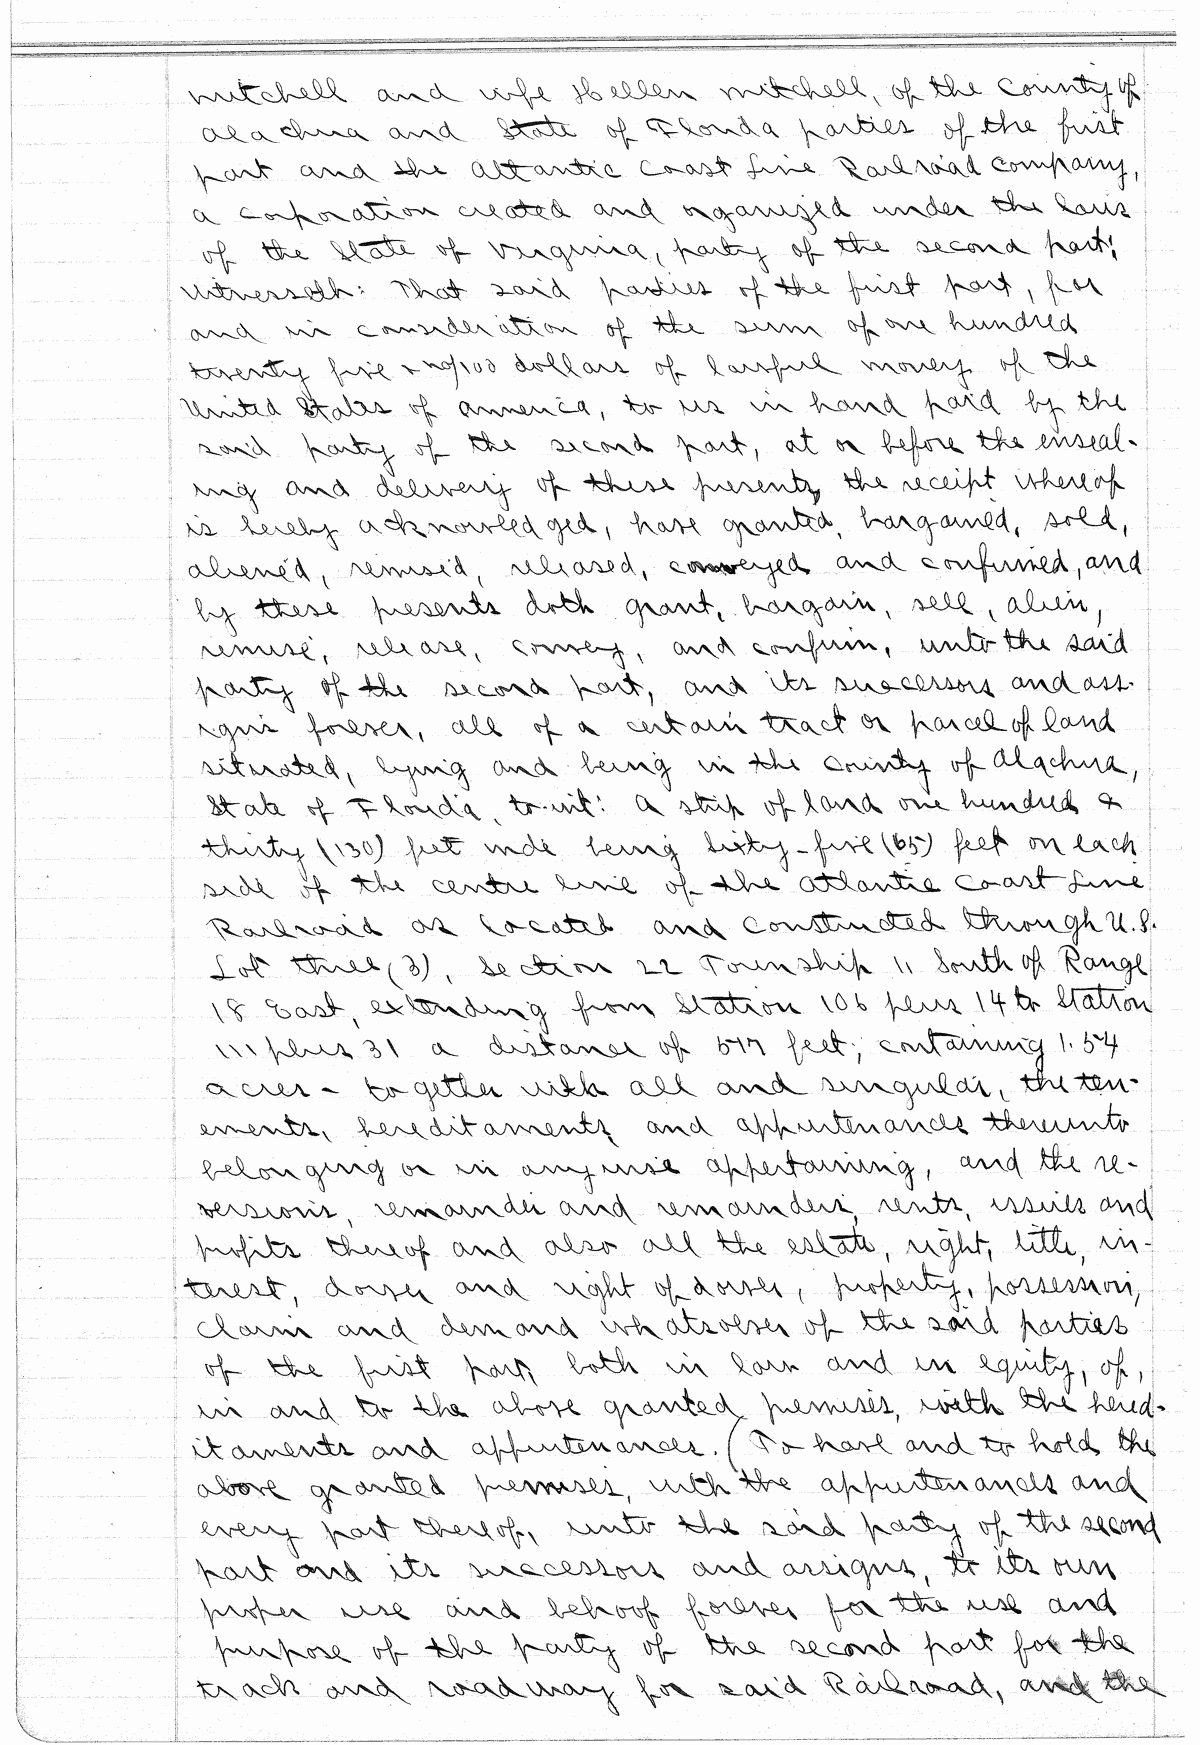 mitchell and wife Hellen mitchell, of the County of
Alachua and State of Florida parties of the first
part and the Atlantic Coast Line Railroad Company,
a corporation created and organized under the laws
of the State of Virginia, party of the second part;
Witnesseth: That said parties of the first part, for
and in consideration of the sum of one hundred
twenty five & no/100 dollars of lawful money of the
United States of America, to us in hand paid by the
said party of the second part, at or before the enseal-
ing and delivery of these presents, the receipt whereof
is hereby acknowledged, have granted, bargained, sold,
aliened, remised, released, conveyed and confirmed, and
by these presents doth grant, bargain, sell, alien,
remise, release, convey, and confirm, unto the said
party of the second part, and its successors and ass-
igns forever, all of a certain tract or parcel of land
situated, lying and being in the County of Alachua,
State of Florida, to-wit: A strip of land one hundred &
thirty (130) feet wide being sixty-five (65) feet on each
side of the centre line of the Atlantic Coast Line
Railroad as located and constructed through U.S.
Lot three (3), Section 22 Township 11 South of Range
18 East, extending from Station 106 plus 14 to Station
111 plus 31 a distance of 517 feet; containing 1.54
acres - together with all and singular, the ten-
ements, hereditaments, and appurtenances thereunto
belonging or in anywise appertaining, and the re-
versions, remainder and remainders, rents, issues and
profits thereof and also all the estate, right, title, in-
terest, dower and right of dower, property, possession,
claim and demand whatsoever of the said parties
of the first part, both in law and in equity, of,
in and to the above granted premises, with the hered-
itaments and appurtenances. (To have and to hold the
above granted premises, with the appurtenances and
every part thereof, unto the said party of the second
part and its successors and assigns, to its own
proper use and behoof forever for the use and
purpose of the party of the second part for the
track and roadway for said Railroad, and the